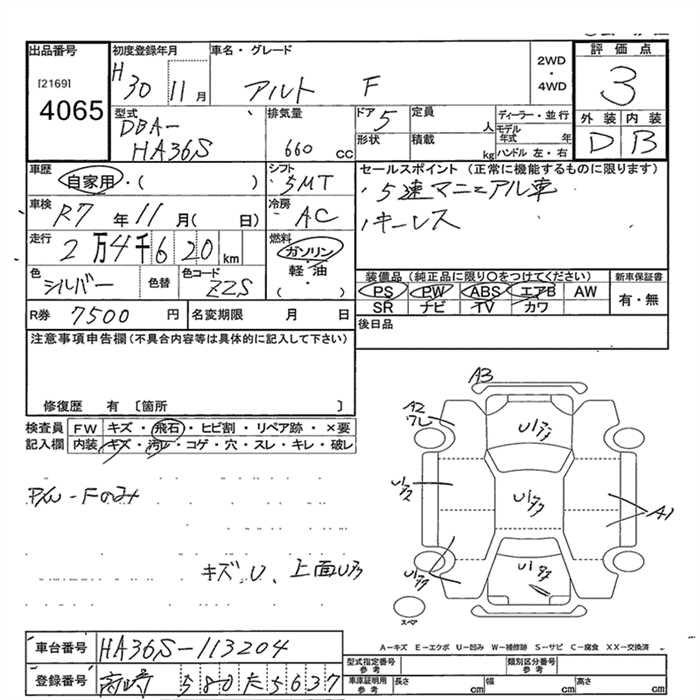 出品番号
[2169]
4065
初度登録年月
H30 11月
車名・グレード
アルト F
2WD
・
4WD
評価点
3
外装 内装
D B
型式
DBA-
HA36S
排気量
660 cc
ドア 5
形状
定員 人
積載 kg
ディーラー・並行
モデル年式 年
ハンドル 左・右
車歴
自家用・( )
シフト
5MT
セールスポイント (正常に機能するものに限ります)
5速マニュアル車
キーレス
車検
R7年11月( 日)
冷房
AC
走行
2万4千620km
燃料
ガソリン
軽・油
・( )
色
シルバー
色替
色コード
ZZS
装備品(純正品に限り○をつけてください)
PS PW ABS エアB AW
SR ナビ TV カワ
新車保証書
有・無
R券 7500円
名変期限 月 日
後日品
注意事項申告欄(不具合内容等は具体的に記入して下さい)
修復歴 有 〔箇所 〕
検査員
記入欄
FW キズ・飛石・ヒビ割・リペア跡・×要
内装 キズ・汚レ・コゲ・穴・スレ・キレ・破レ
P/W-Fのみ
キズ、U、上面Uアタ
A3
A2
ワレ
A1
スペア
A-キズ E-エクボ U-凹み W-補修跡 S-サビ C-腐食 XX-交換済
車台番号 HA36S-113204
登録番号 高崎 580 た 5637
型式指定番号
参考
類別区分番号
参考
車庫証明用
参考
長さ cm
幅 cm
高さ cm